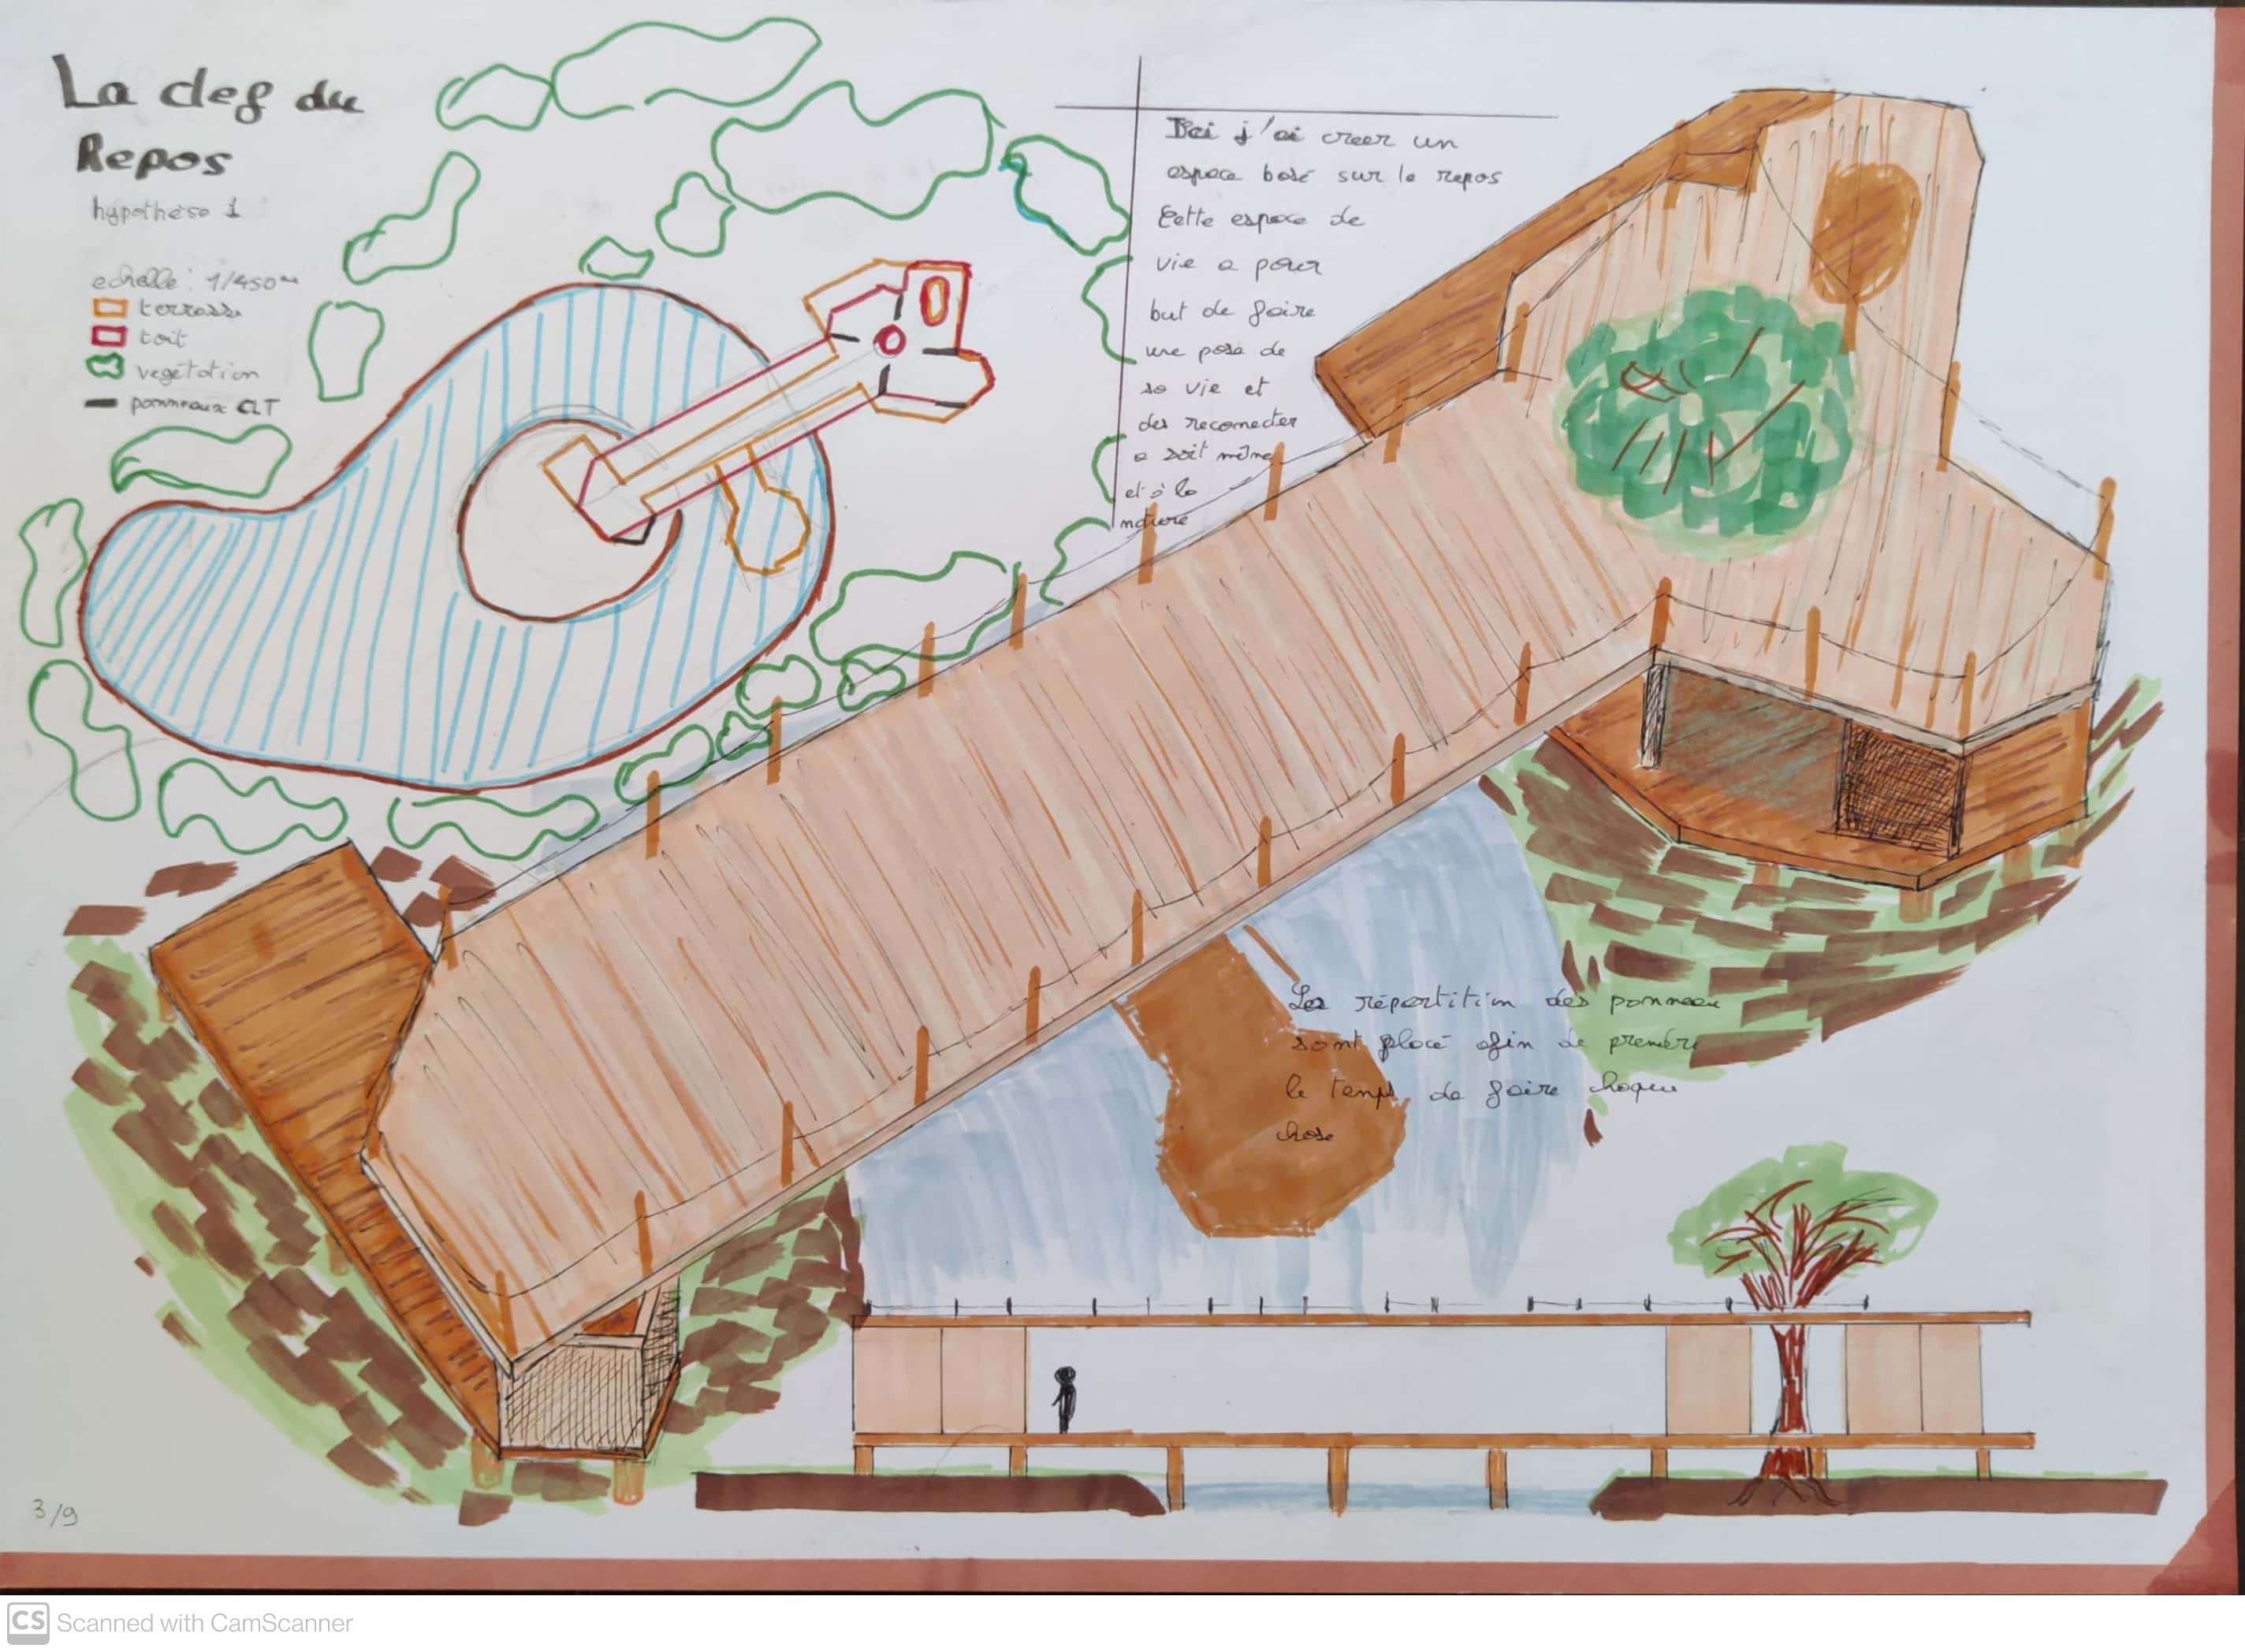 La clef du
Repos
hypothèse 1
echelle: 1/450
terrasse
toit
vegétation
panneaux CLT
Ici j'ai creer un
espace basé sur le repos
Cette espace de
vie a pour
but de faire
une pose de
sa vie et
des reconecter
a soit même
et à la
nature
Les répartition des panneau
sont placé afin de prendre
le temps de faire chaque
chose
3/9
CS Scanned with CamScanner